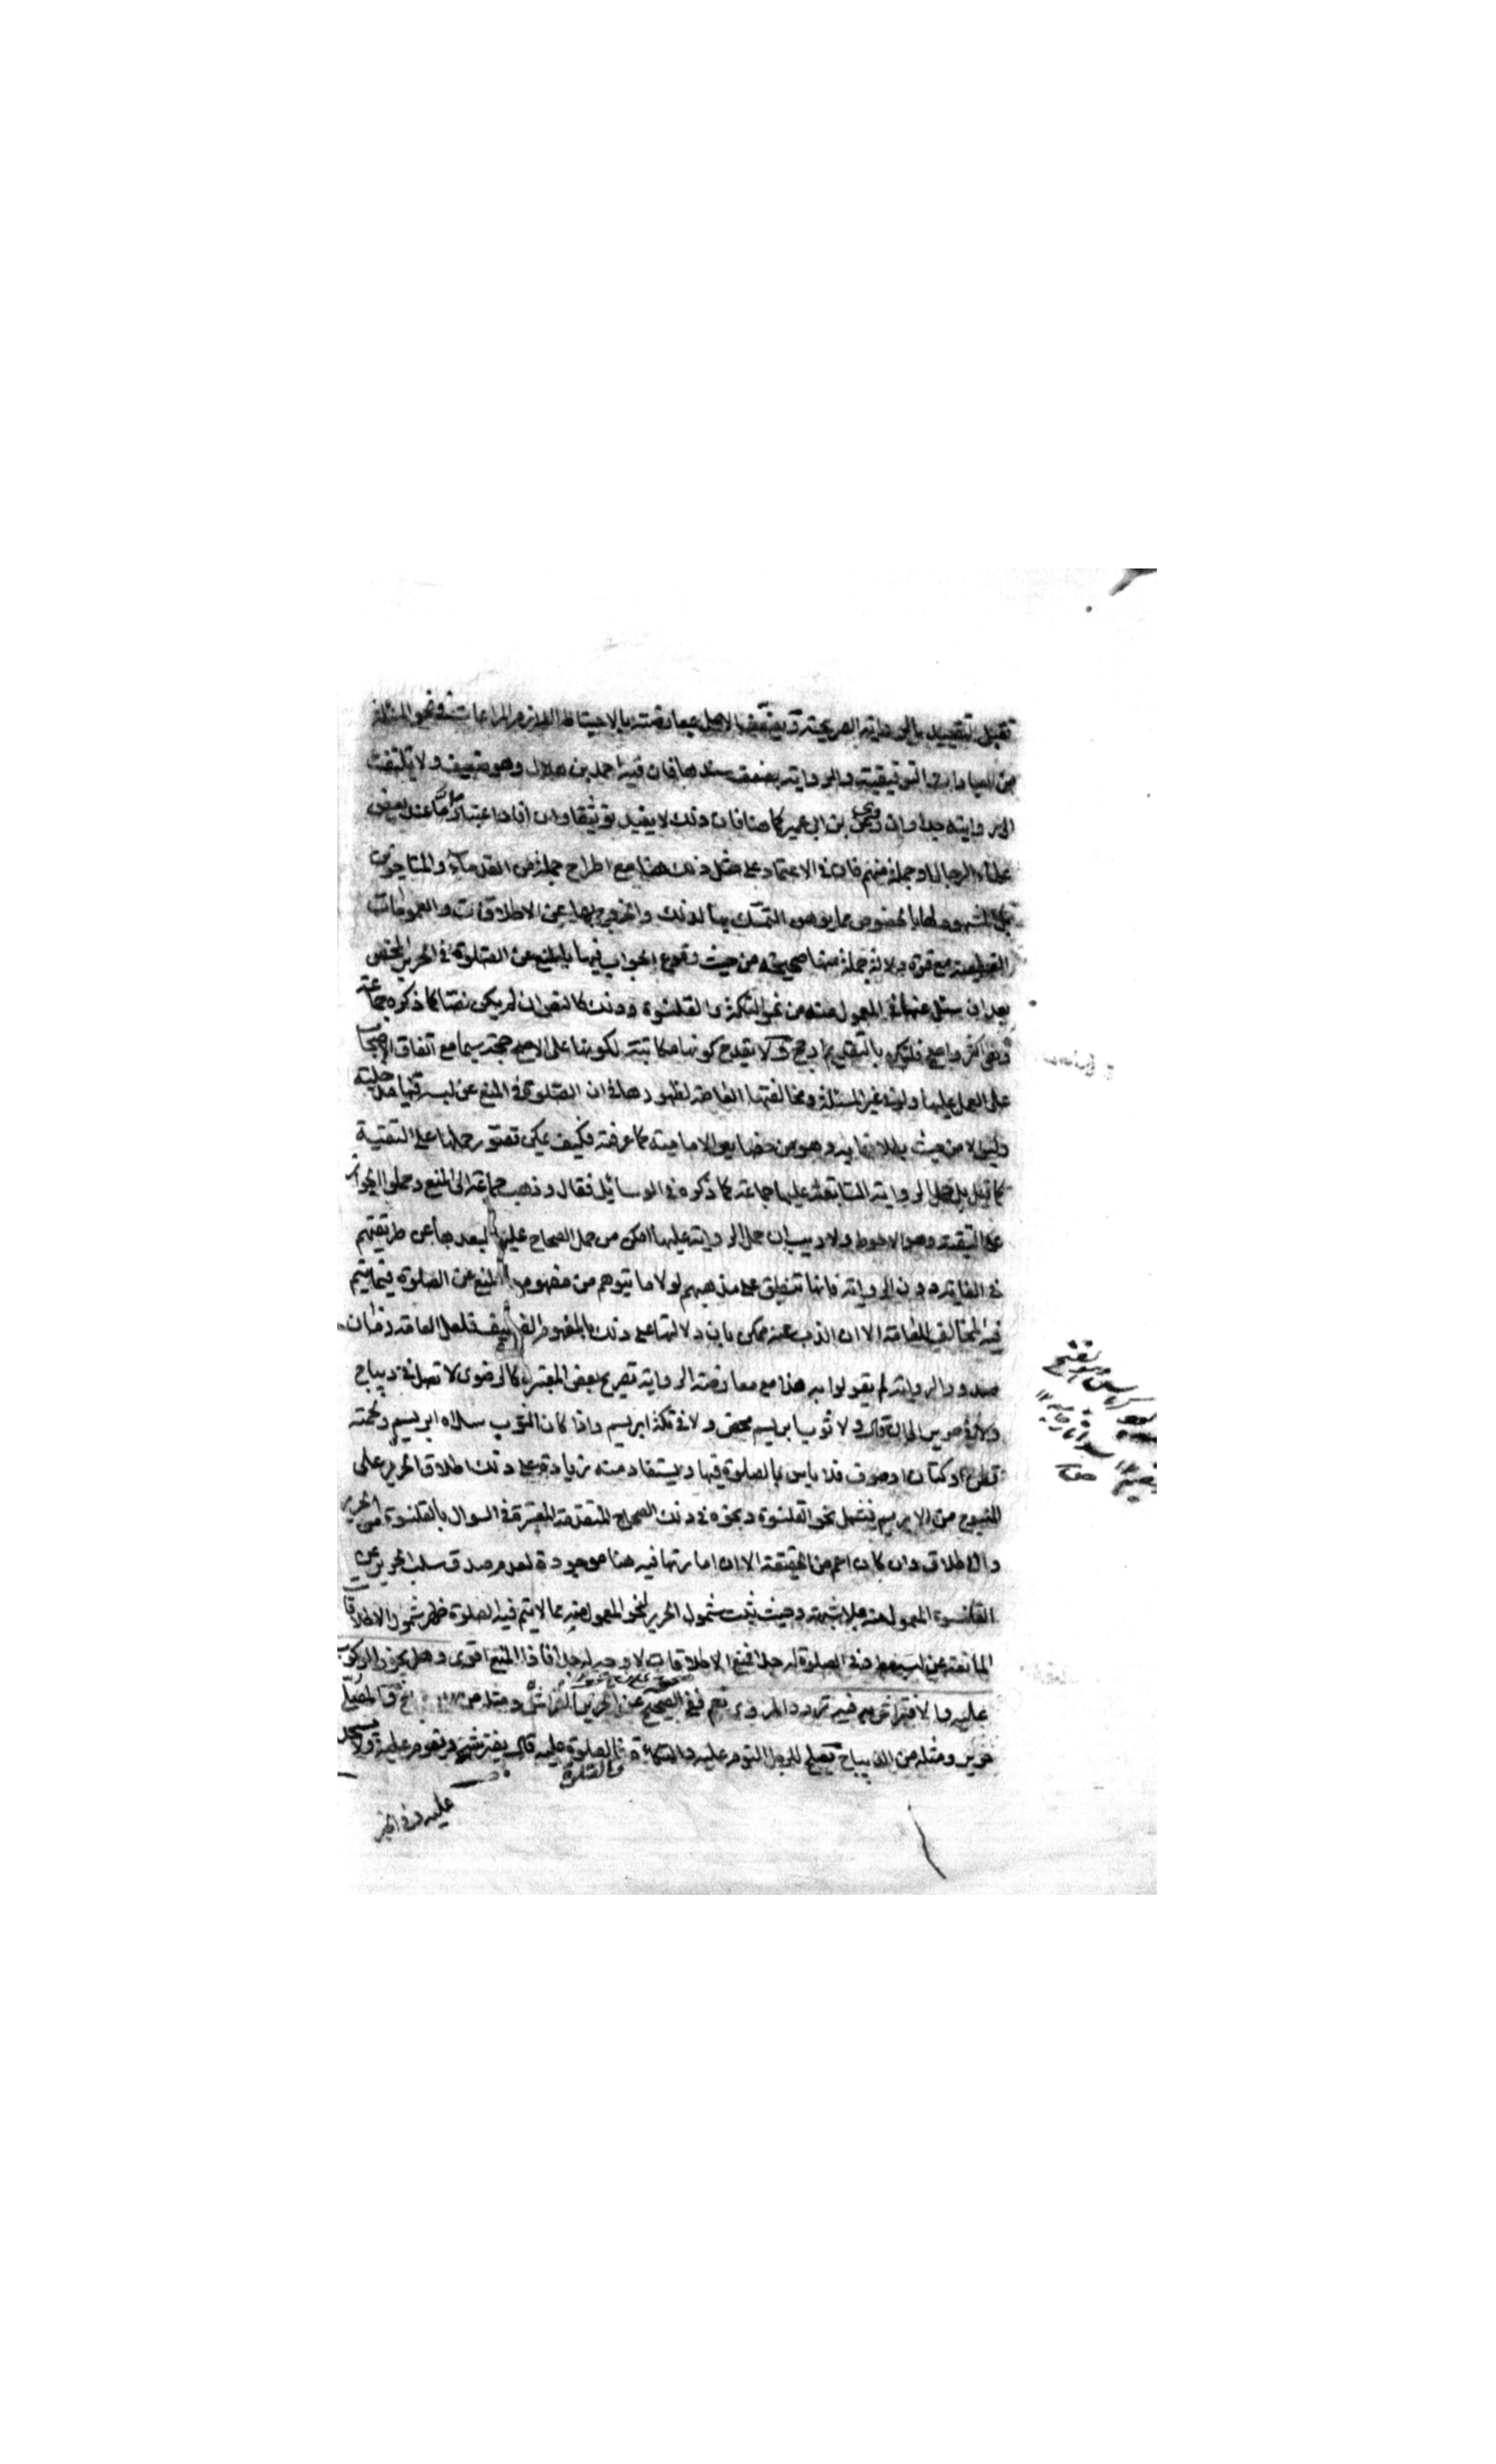 تقبل التقييد بالرواية الصريحة ويضعف الاصل بمعارضته بالاحتياط اللازم المراعات في نحو المسئلة
من العبادات التوقيفية والرواية بضعف سندها فان فيه احمد بن هلال وهو ضعيف ولا يلتفت
الى روايته جدا وان روى عن بن ابي عمير كما هنا فان ذلك لا يفيد توثيقا وان افاد اعتبارا ما عند بعض
علماء الرجال او جملة منهم فان في الاعتماد على مثل ذلك هنا مع اطراح جملة من القدماء والمتاخرين
بل المشهور لها بالخصوص مما يوهن التمسك بها لذلك والخروج بها عن الاطلاقات والعمومات
القطعية مع قوة دلالة جملة منها صحيحة من حيث وقوع الجواب فيها بالمنع عن الصلوة في الحرير المحض
بعد ان سئل عنها في المعمول منه من نحو التكة والقلنسوة وذلك كالنص ان لم يكن نصا كما ذكره جماعة
واضح فلتكن بالتقديم ارجح ولا يقدح كونها مكاتبة لكونها على الاصح حجة سيما مع اتفاق الاصحاب
على العمل عليها ولو في غير المسئلة ومخالفتها العامة لظهورها في ان الصلوة في المنع عن لبس
وليس الا من حيث بطلانها به وهو من خصايص الامامية كما عرفته فكيف يمكن تصور حملها على التقية
كما قيل بل حمل الرواية السابقة عليها جماعة كما ذكره في الوسائل فقال وذهب جماعة الى المنع وحملوا الجواز
على التقية وهو الاحوط ولا ريب ان حمل الرواية عليها امكن من حمل الصحاح عليها لبعدها عن طريقتهم
في الغاية دون الرواية فانها تنطبق على مذهبهم لولا ما يتوهم من مفهومها المنع عن الصلوة فيما يتم
فيه المخالف للعامة الا ان الذب عنه ممكن بان دلالتها على ذلك بالمفهوم الضعيف فلعل العامة زمان
صدور الرواية لم يقولوا به هذا مع معارضة الرواية بصريح بعض المعتبرة كالرضوي لا تصل في ديباج
ولا في حرير الى ان قال ولا ثوب ابريسم محض ولا في تكة ابريسم واذا كان الثوب سداه ابريسم ولحمته
قطن او كتان او صوف فلا باس بالصلوة فيها ويستفاد منه زيادة على ذلك اطلاق الحرير على
المنسوج من الابريسم فيشمل نحو القلنسوة ونحوه في ذلك الصحاح المتقدمة المعبرة في السوال بالقلنسوة من الحرير
والاطلاق وان كان اعم من الحقيقة الا ان امارتها فيه هنا موجودة لعدم صدق سلب الحرير عن
القلنسوة المعمولة منه بلا شبهة وحيث ثبت شمول الحرير لنحو المعمول منه مما لا يتم فيه الصلوة ظهر شمول الاطلاقات
المانعة عن لبسه في الصلوة له جدا فمنع الاطلاقات لا وجه له جدا فاذا المنع اقوى وهل يجوز الركوب
عليه والافتراش به فيه تردد المروي نعم ففي الصحيح عن الحرير ومثله من
حرير ومثله من الديباج يصلح للرجل النوم عليه والتكاءة والصلوة عليه قال يفترشه ويقوم عليه ولا يسجد
عليه وفي الخبر